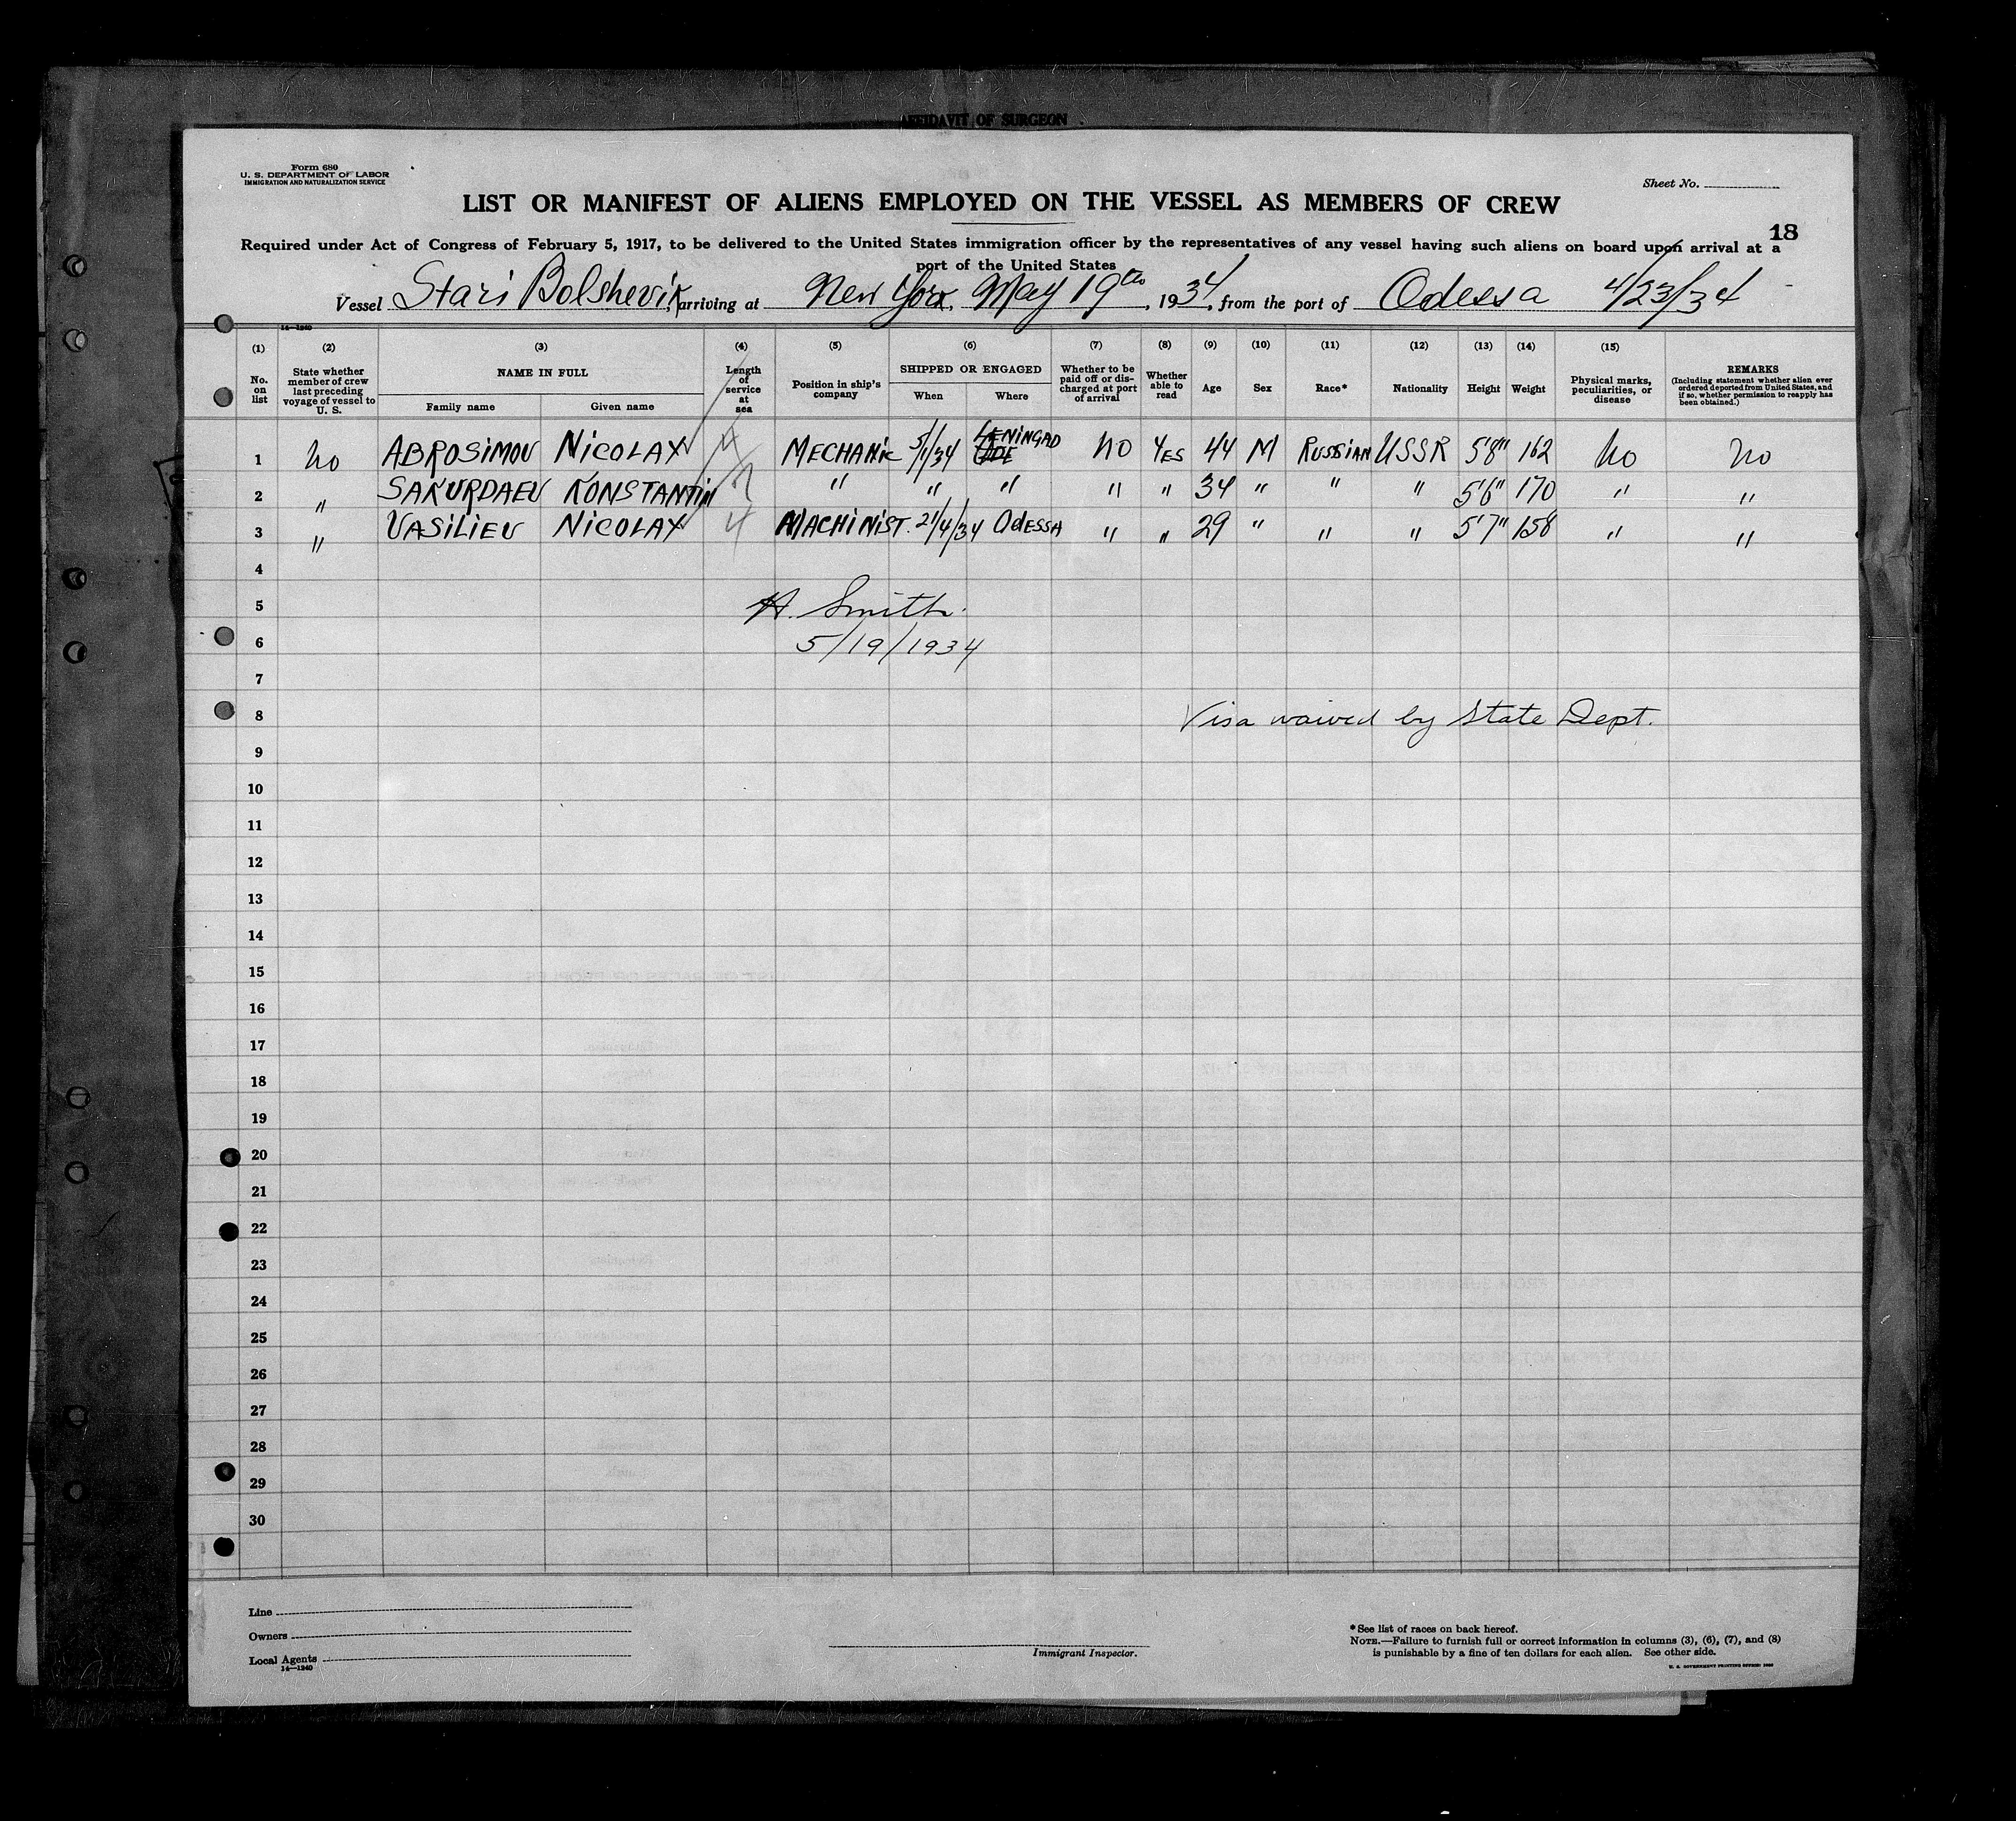 AFFIDAVIT OF SURGEON
Form 680
U. S. DEPARTMENT OF LABOR
IMMIGRATION AND NATURALIZATION SERVICE
Sheet No.
LIST OR MANIFEST OF ALIENS EMPLOYED ON THE VESSEL AS MEMBERS OF CREW
18
Required under Act of Congress of February 5, 1917, to be delivered to the United States immigration officer by the representatives of any vessel having such aliens on board upon arrival at a
port of the United States
Vessel Stari Bolshevik, arriving at New York, May 19th, 1934, from the port of Odessa 4/23/34
14—1240
(1) (2) (3) (4) (5) (6) (7) (8) (9) (10) (11) (12) (13) (14) (15)
No. on list State whether member of crew last preceding voyage of vessel to U. S. NAME IN FULL Family name Given name Length of service at sea Position in ship's company SHIPPED OR ENGAGED When Where Whether to be paid off or discharged at port of arrival Whether able to read Age Sex Race* Nationality Height Weight Physical marks, peculiarities, or disease REMARKS (Including statement whether alien ever ordered deported from United States, and if so, whether permission to reapply has been obtained.)
1 No ABROSIMOV NICOLAY 4 MECHANIC 5/1/34 LENINGAD NO YES 44 M RUSSIAN USSR 5'8" 162 No No
2 " SAKURDAEV KONSTANTIN " " " " " 34 " " " 5'6" 170 " "
3 " VASILIEV NICOLAY 4 MACHINIST. 21/4/34 ODESSA " " 29 " " " 5'7" 158 " "
4
5 H. Smith.
6 5/19/1934
7
8 Visa waived by State Dept.
9
10
11
12
13
14
15
16
17
18
19
20
21
22
23
24
25
26
27
28
29
30
Line
Owners
Local Agents
14—1240
Immigrant Inspector.
*See list of races on back hereof.
NOTE.—Failure to furnish full or correct information in columns (3), (6), (7), and (8)
is punishable by a fine of ten dollars for each alien. See other side.